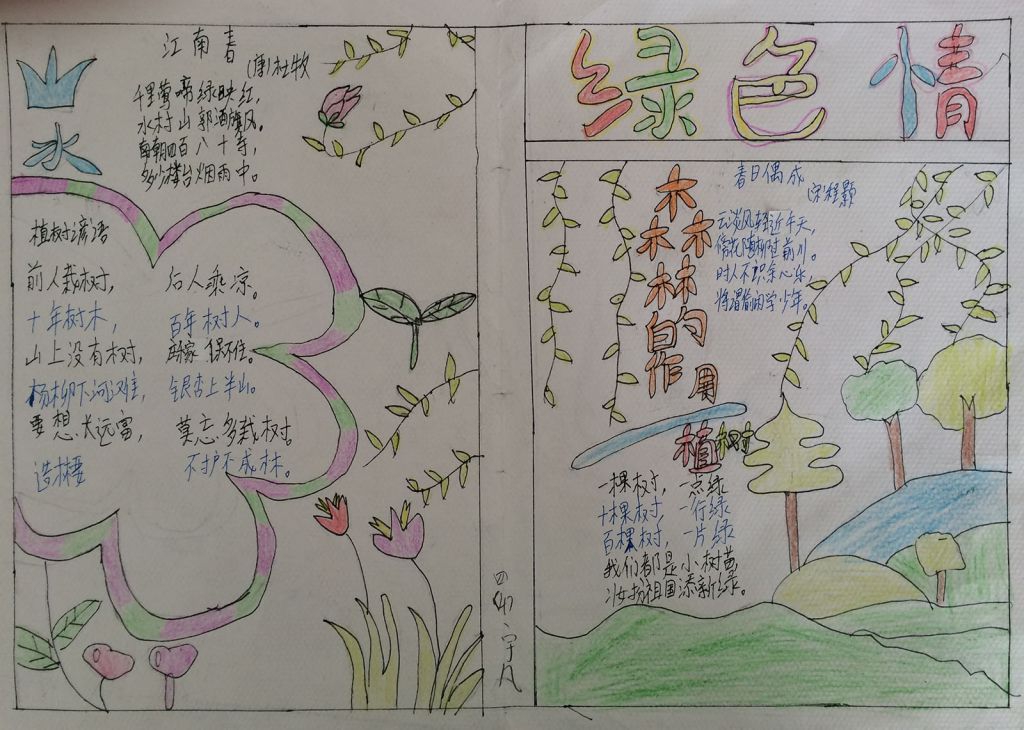 绿色情
山
水
江南春
(唐)杜牧
千里莺啼绿映红，
水村山郭酒旗风。
南朝四百八十寺，
多少楼台烟雨中。
植树谚语
前人栽树， 后人乘凉。
十年树木， 百年树人。
山上没有树， 保不住。
杨柳下河滩， 银杏上半山。
要想长远富， 莫忘多栽树。
造林 不护不成林。
木
木木
林林
的
作用
春日偶成
宋程颢
云淡风轻近午天，
傍花随柳过前川。
时人不识余心乐，
将谓偷闲学少年。
植树
一棵树，一点绿
十棵树 一行绿
百棵树，一片绿
我们都是小树苗，
祖国添新绿。
四
宇凡